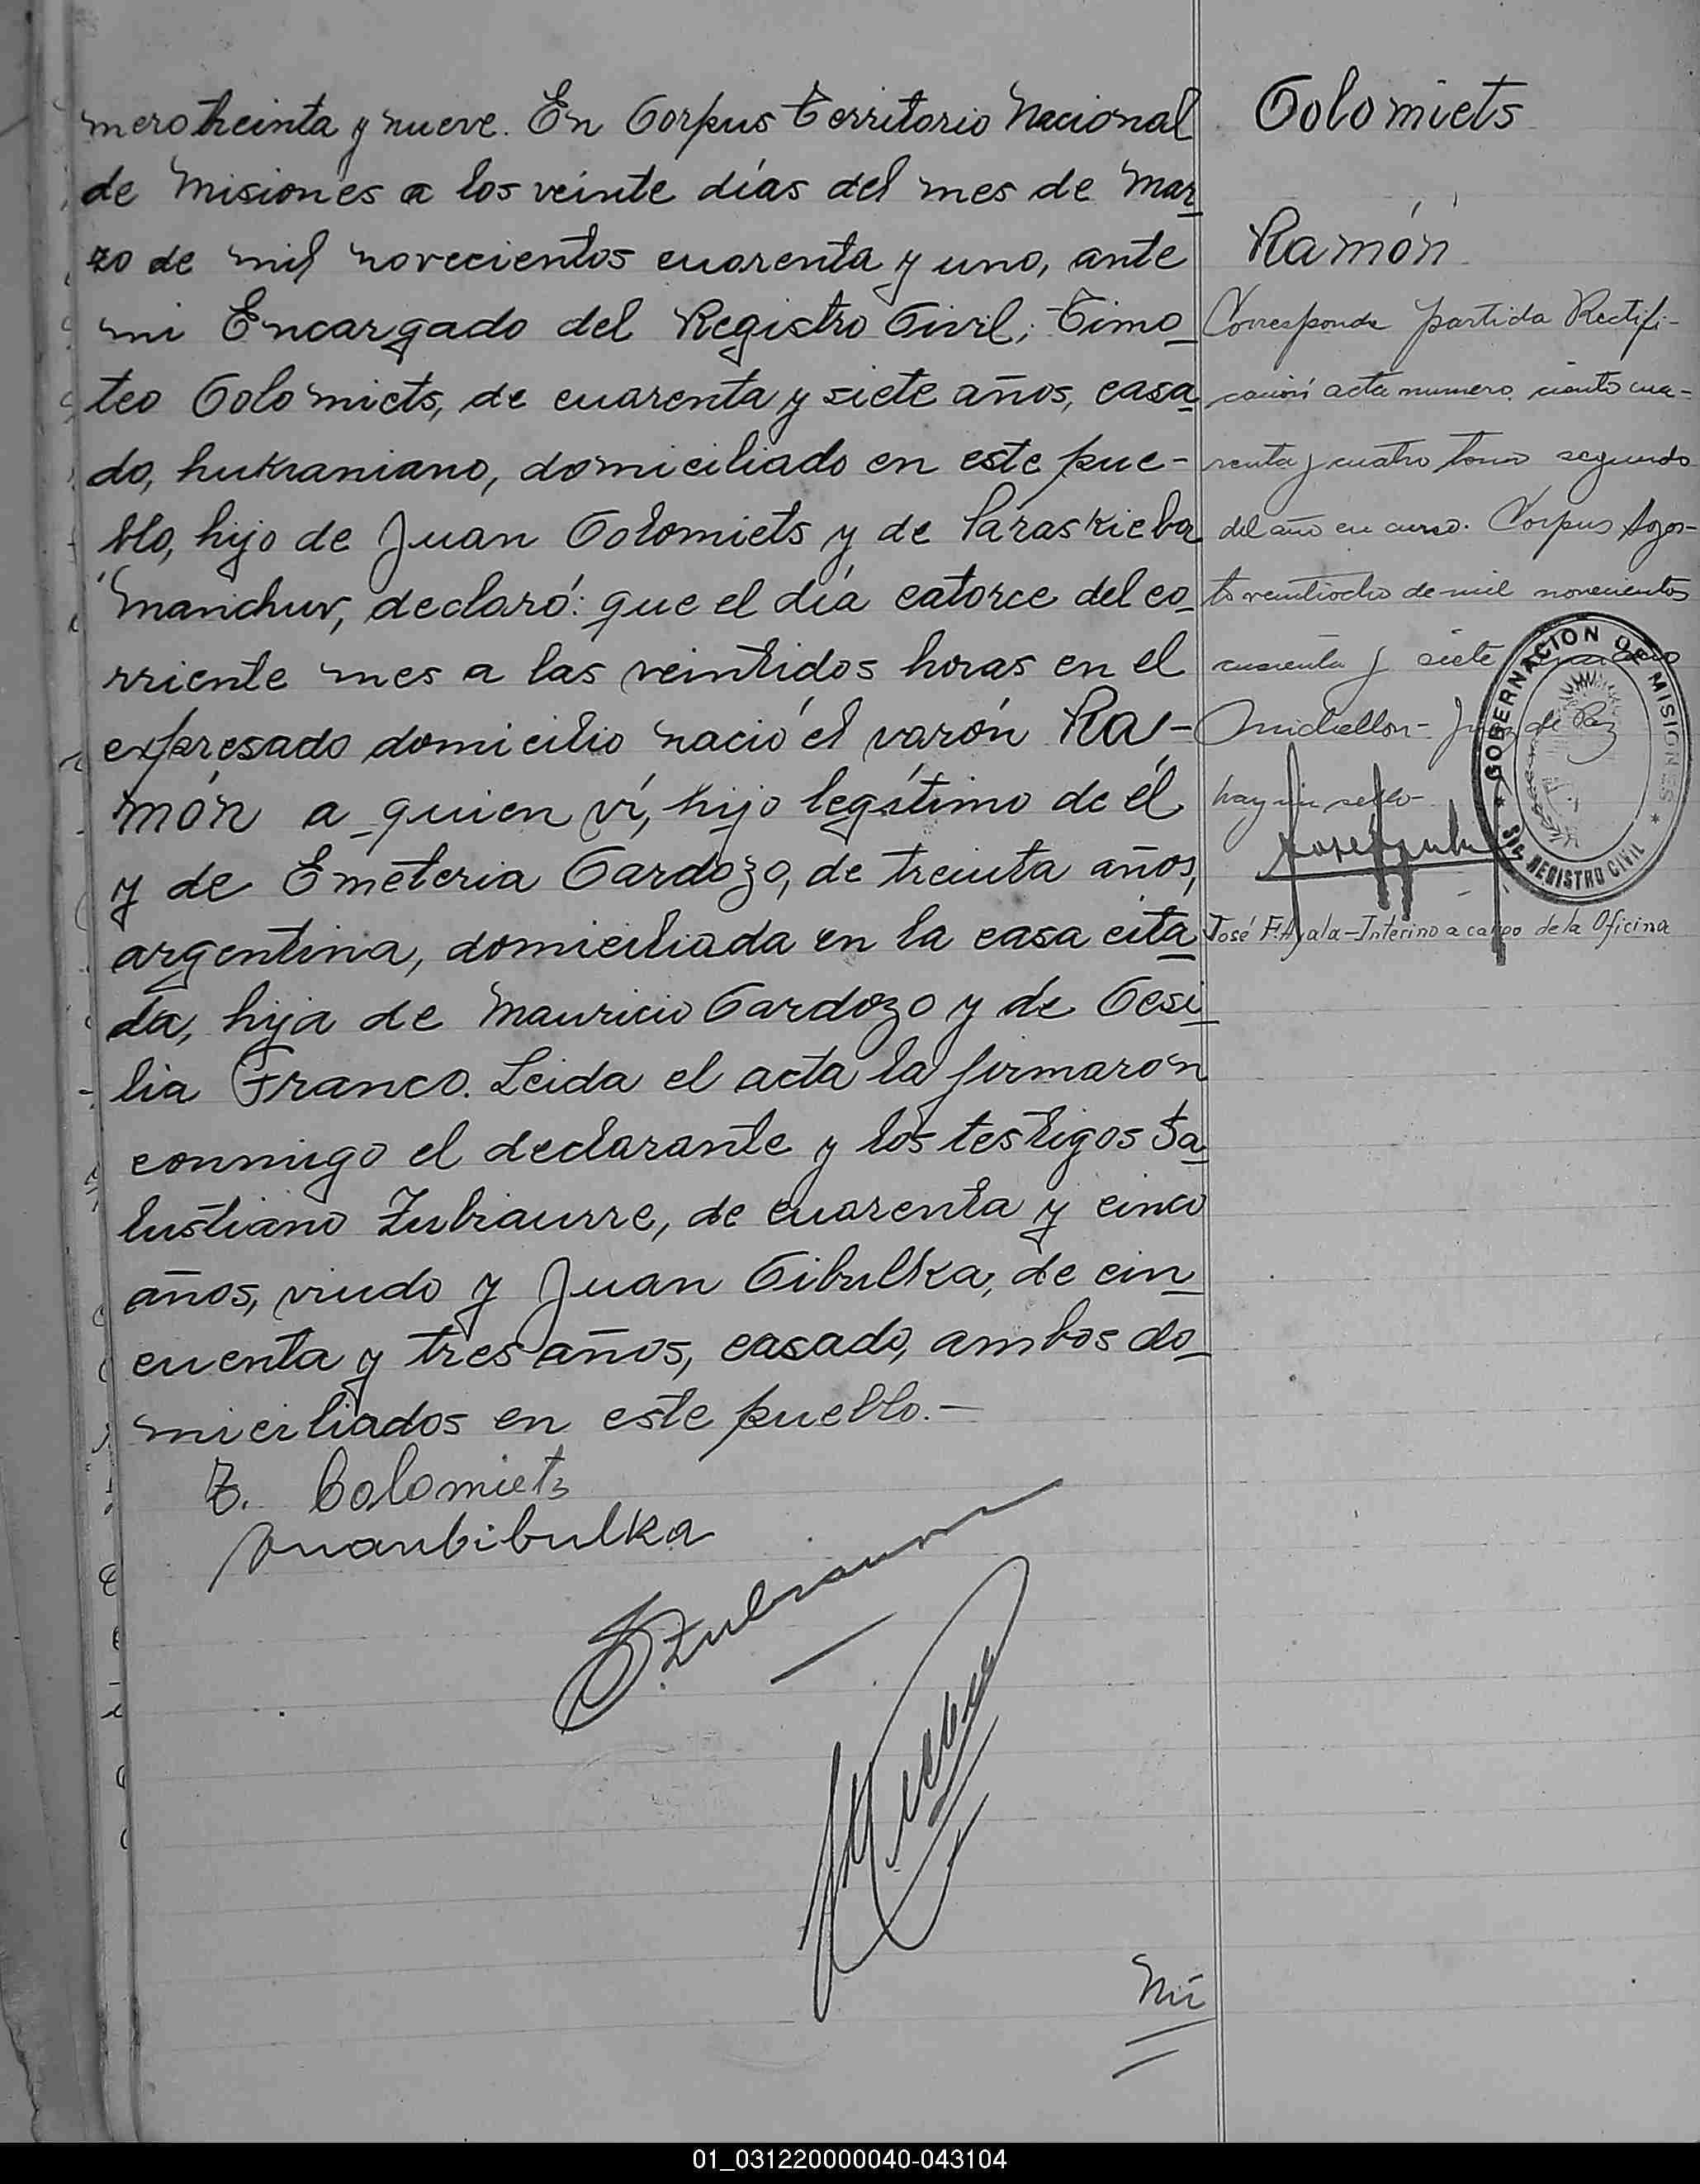 mero treinta y nueve. En Corpus Territorio Nacional
de Misiones a los veinte días del mes de Mar
zo de mil novecientos cuarenta y uno, ante
mi Encargado del Registro Civil; Timo
teo Colomiets, de cuarenta y siete años, casa
do, hukraniano, domiciliado en este pue-
blo, hijo de Juan Colomiets y de Paraskieba
Manchur, declaró: que el día catorce del co
rriente mes a las veintidos horas en el
expresado domicilio nació el varón Ra-
món a quien ví, hijo legítimo de él
y de Emeteria Cardozo, de treinta años,
argentina, domiciliada en la casa cita
da, hija de Mauricio Cardozo y de Cesi
lia Franco. Leida el acta la firmaron
conmigo el declarante y los testigos Sa
lustiano Zubiaurre, de cuarenta y cinco
años, viudo y Juan Cibulka, de cin
cuenta y tres años, casado, ambos do
miciliados en este pueblo.-
T. Colomiets
Juan Cibulka
S Zubiaurre
Nú
Colomiets
Ramón
Corresponde partida Rectifi-
cación acta numero ciento cua-
renta y cuatro tomo segundo
del año en curso. Corpus Agos-
to veintiocho de mil novecientos
cuarenta y siete
Juez de Paz
hay un sello
GOBERNACION DE MISIONES
REGISTRO CIVIL
José F. Ayala-Interino a cargo de la Oficina
01_031220000040-043104